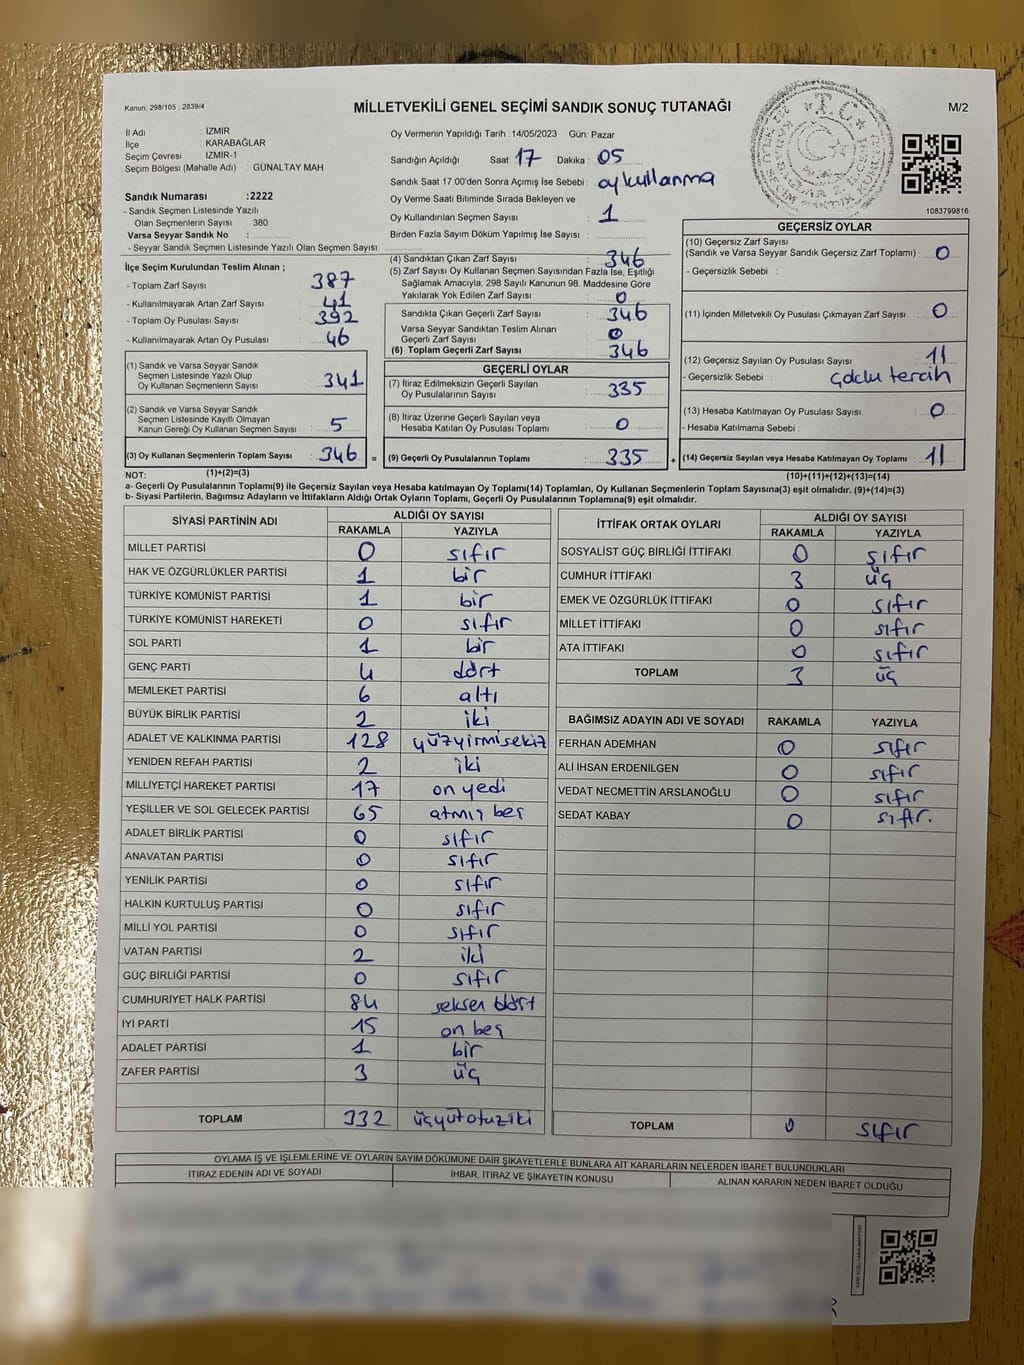 Kanun; 298/105 , 2839/4
MİLLETVEKİLİ GENEL SEÇİMİ SANDIK SONUÇ TUTANAĞI
M/2
T.C.
1083799816
İl Adı : İZMİR
İlçe KARABAĞLAR
Seçim Çevresi İZMİR-1
Seçim Bölgesi (Mahalle Adı) : GÜNALTAY MAH
Sandık Numarası :2222
- Sandık Seçmen Listesinde Yazılı
Olan Seçmenlerin Sayısı : 380
Varsa Seyyar Sandık No :
- Seyyar Sandık Seçmen Listesinde Yazılı Olan Seçmen Sayısı:
Oy Vermenin Yapıldığı Tarih :14/05/2023 Gün: Pazar
Sandığın Açıldığı Saat: 17 Dakika : 05
Sandık Saat 17.00'den Sonra Açımış İse Sebebi : oykullanma
Oy Verme Saati Bitiminde Sırada Bekleyen ve
Oy Kullandırılan Seçmen Sayısı : 1
Birden Fazla Sayım Döküm Yapılmış İse Sayısı :
İlçe Seçim Kurulundan Teslim Alınan ;
- Toplam Zarf Sayısı : 387
- Kullanılmayarak Artan Zarf Sayısı : 41
- Toplam Oy Pusulası Sayısı : 392
- Kullanılmayarak Artan Oy Pusulası : 46
(1) Sandık ve Varsa Seyyar Sandık
Seçmen Listesinde Yazılı Olup
Oy Kullanan Seçmenlerin Sayısı : 341
(2) Sandık ve Varsa Seyyar Sandık
Seçmen Listesinde Kayıtlı Olmayan
Kanun Gereği Oy Kullanan Seçmen Sayısı : 5
(3) Oy Kullanan Seçmenlerin Toplam Sayısı : 346 =
(1)+(2)=(3)
(4) Sandıktan Çıkan Zarf Sayısı : 346
(5) Zarf Sayısı Oy Kullanan Seçmen Sayısından Fazla İse, Eşitliği
Sağlamak Amacıyla, 298 Sayılı Kanunun 98. Maddesine Göre
Yakılarak Yok Edilen Zarf Sayısı : 0
Sandıkta Çıkan Geçerli Zarf Sayısı : 346
Varsa Seyyar Sandıktan Teslim Alınan
Geçerli Zarf Sayısı : 0
(6) Toplam Geçerli Zarf Sayısı : 346
GEÇERLİ OYLAR
(7) İtiraz Edilmeksizin Geçerli Sayılan
Oy Pusulalarının Sayısı : 335
(8) İtiraz Üzerine Geçerli Sayılan veya
Hesaba Katılan Oy Pusulası Toplamı : 0
(9) Geçerli Oy Pusulalarının Toplamı : 335 +
GEÇERSİZ OYLAR
(10) Geçersiz Zarf Sayısı
(Sandık ve Varsa Seyyar Sandık Geçersiz Zarf Toplamı) : 0
- Geçersizlik Sebebi :
(11) İçinden Milletvekili Oy Pusulası Çıkmayan Zarf Sayısı : 0
(12) Geçersiz Sayılan Oy Pusulası Sayısı : 11
- Geçersizlik Sebebi : çoklu tercih
(13) Hesaba Katılmayan Oy Pusulası Sayısı : 0
- Hesaba Katılmama Sebebi :
(14) Geçersiz Sayılan veya Hesaba Katılmayan Oy Toplamı : 11
(10)+(11)+(12)+(13)=(14)
NOT:
a- Geçerli Oy Pusulalarının Toplamı(9) ile Geçersiz Sayılan veya Hesaba katılmayan Oy Toplamı(14) Toplamları, Oy Kullanan Seçmenlerin Toplam Sayısına(3) eşit olmalıdır. (9)+(14)=(3)
b- Siyasi Partilerin, Bağımsız Adayların ve İttifakların Aldığı Ortak Oyların Toplamı, Geçerli Oy Pusulalarının Toplamına(9) eşit olmalıdır.
SİYASİ PARTİNİN ADI ALDIĞI OY SAYISI
RAKAMLA YAZIYLA
MİLLET PARTİSİ 0 sıfır
HAK VE ÖZGÜRLÜKLER PARTİSİ 1 bir
TÜRKİYE KOMÜNİST PARTİSİ 1 bir
TÜRKİYE KOMÜNİST HAREKETİ 0 sıfır
SOL PARTİ 1 bir
GENÇ PARTİ 4 dört
MEMLEKET PARTİSİ 6 altı
BÜYÜK BİRLİK PARTİSİ 2 iki
ADALET VE KALKINMA PARTİSİ 128 yüzyirmisekiz
YENİDEN REFAH PARTİSİ 2 iki
MİLLİYETÇİ HAREKET PARTİSİ 17 on yedi
YEŞİLLER VE SOL GELECEK PARTİSİ 65 atmış beş
ADALET BİRLİK PARTİSİ 0 sıfır
ANAVATAN PARTİSİ 0 sıfır
YENİLİK PARTİSİ 0 sıfır
HALKIN KURTULUŞ PARTİSİ 0 sıfır
MİLLİ YOL PARTİSİ 0 sıfır
VATAN PARTİSİ 2 iki
GÜÇ BİRLİĞİ PARTİSİ 0 sıfır
CUMHURİYET HALK PARTİSİ 84 seksen dört
İYİ PARTİ 15 on beş
ADALET PARTİSİ 1 bir
ZAFER PARTİSİ 3 üç
TOPLAM 332 üçyüzotuziki
İTTİFAK ORTAK OYLARI ALDIĞI OY SAYISI
RAKAMLA YAZIYLA
SOSYALİST GÜÇ BİRLİĞİ İTTİFAKI 0 sıfır
CUMHUR İTTİFAKI 3 üç
EMEK VE ÖZGÜRLÜK İTTİFAKI 0 sıfır
MİLLET İTTİFAKI 0 sıfır
ATA İTTİFAKI 0 sıfır
TOPLAM 3 üç
BAĞIMSIZ ADAYIN ADI VE SOYADI RAKAMLA YAZIYLA
FERHAN ADEMHAN 0 sıfır
ALİ İHSAN ERDENİLGEN 0 sıfır
VEDAT NECMETTİN ARSLANOĞLU 0 sıfır
SEDAT KABAY 0 sıfır.
TOPLAM 0 sıfır
OYLAMA İŞ VE İŞLEMLERİNE VE OYLARIN SAYIM DÖKÜMÜNE DAİR ŞİKAYETLERLE BUNLARA AİT KARARLARIN NELERDEN İBARET BULUNDUKLARI
İTİRAZ EDENİN ADI VE SOYADI İHBAR, İTİRAZ VE ŞİKAYETİN KONUSU ALINAN KARARIN NEDEN İBARET OLDUĞU